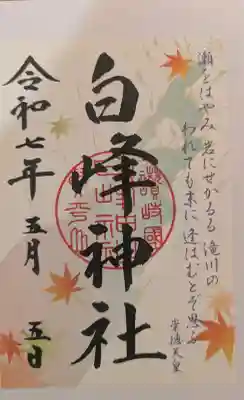 瀬をはやみ 岩にせかるる 滝川の
われても末に 逢はむとぞ思ふ
崇徳天皇
白峰神社
讃岐國
令和七年 五月 五日